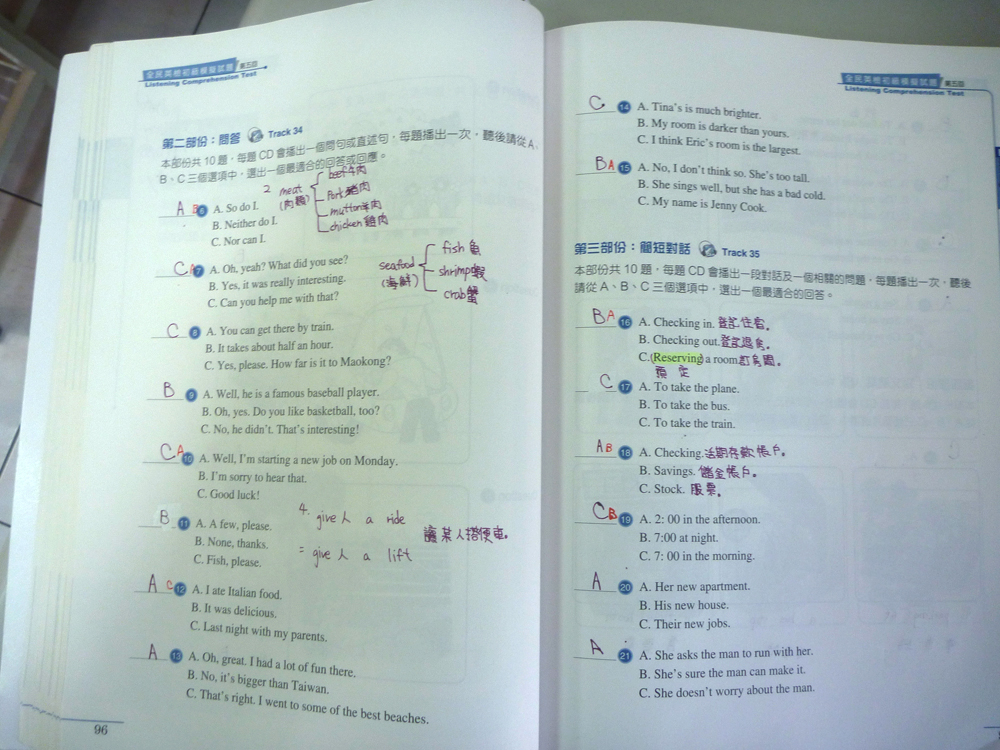 全民英檢初級模擬試題 第五回
Listening Comprehension Test
第二部份：問答 Track 34
本部份共 10 題，每題 CD 會播出一個問句或直述句，每題播出一次，聽後請從 A、
B、C 三個選項中，選出一個最適合的回答或回應。
2 meat
(肉類)
beef牛肉
Pork豬肉
mutton羊肉
chicken 雞肉
A B 6 A. So do I.
B. Neither do I.
C. Nor can I.
seafood
(海鮮)
fish 魚
shrimp蝦
crab蟹
C A 7 A. Oh, yeah? What did you see?
B. Yes, it was really interesting.
C. Can you help me with that?
C 8 A. You can get there by train.
B. It takes about half an hour.
C. Yes, please. How far is it to Maokong?
B 9 A. Well, he is a famous baseball player.
B. Oh, yes. Do you like basketball, too?
C. No, he didn't. That's interesting!
C A 10 A. Well, I'm starting a new job on Monday.
B. I'm sorry to hear that.
C. Good luck!
B 11 A. A few, please.
B. None, thanks.
C. Fish, please.
4. give 人 a ride
= give 人 a lift
讓某人搭便車。
A C 12 A. I ate Italian food.
B. It was delicious.
C. Last night with my parents.
A 13 A. Oh, great. I had a lot of fun there.
B. No, it's bigger than Taiwan.
C. That's right. I went to some of the best beaches.
96
全民英檢初級模擬試題 第五回
Listening Comprehension Test
C 14 A. Tina's is much brighter.
B. My room is darker than yours.
C. I think Eric's room is the largest.
B A 15 A. No, I don't think so. She's too tall.
B. She sings well, but she has a bad cold.
C. My name is Jenny Cook.
第三部份：簡短對話 Track 35
本部份共 10 題，每題 CD 會播出一段對話及一個相關的問題，每題播出一次，聽後
請從 A、B、C 三個選項中，選出一個最適合的回答。
B A 16 A. Checking in. 登記住宿。
B. Checking out. 登記退房。
C. (Reserving) a room 訂房間。
預定
C 17 A. To take the plane.
B. To take the bus.
C. To take the train.
A B 18 A. Checking. 活期存款帳戶。
B. Savings. 儲金帳戶。
C. Stock. 股票。
C B 19 A. 2: 00 in the afternoon.
B. 7:00 at night.
C. 7: 00 in the morning.
A 20 A. Her new apartment.
B. His new house.
C. Their new jobs.
A 21 A. She asks the man to run with her.
B. She's sure the man can make it.
C. She doesn't worry about the man.